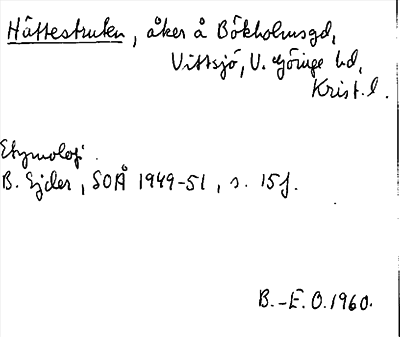 Hättestruken, åker å Bökholmsgd,
Vittsjö, V. Göinge hd,
Krist. l.
Etymologi.
B. Ejder, SOÅ 1949-51, s. 15f.
B.-E. O. 1960.